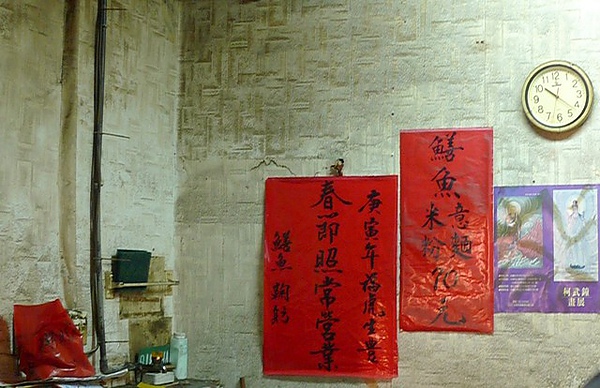 庚寅年福虎生豐
春節照常營業
鱔魚 鞠躬
鱔魚
意麵
米粉
90元
柯武鐘
畫展
12
1
2
3
4
5
6
7
8
9
10
11